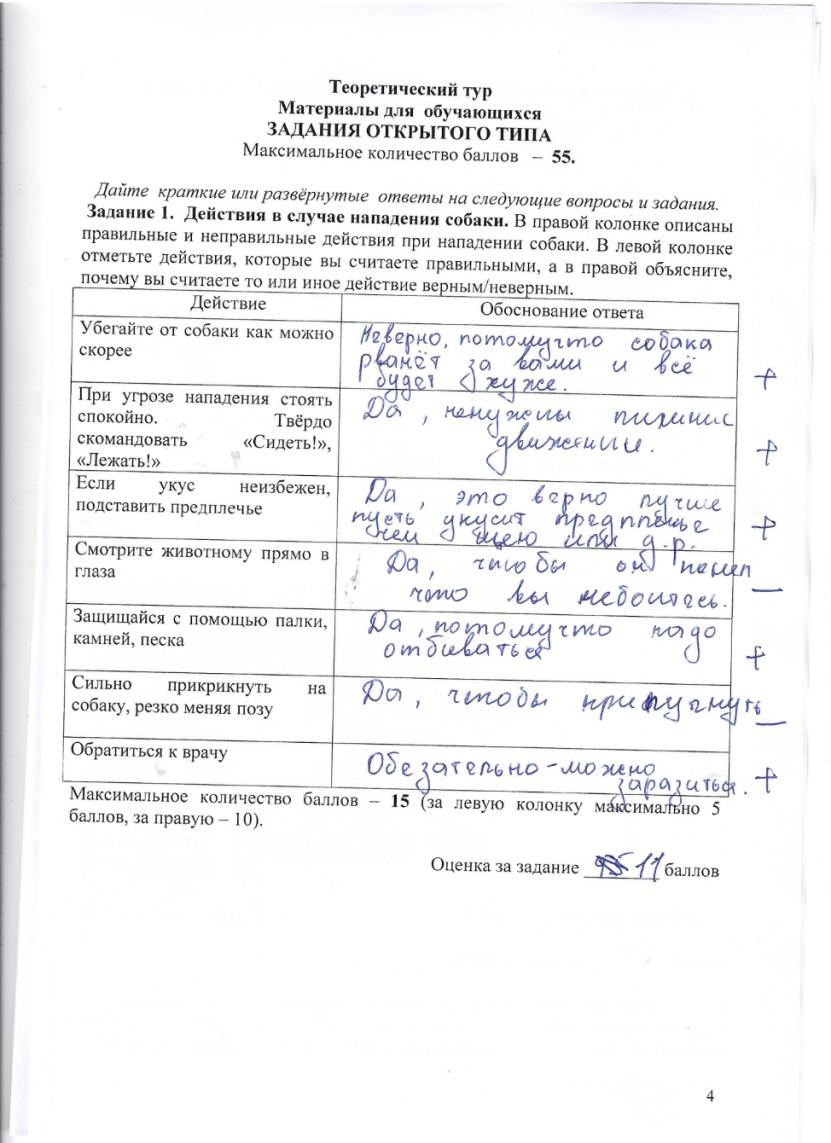 Теоретический тур
Материалы для обучающихся
ЗАДАНИЯ ОТКРЫТОГО ТИПА
Максимальное количество баллов – 55.
Дайте краткие или развёрнутые ответы на следующие вопросы и задания.
Задание 1. Действия в случае нападения собаки. В правой колонке описаны
правильные и неправильные действия при нападении собаки. В левой колонке
отметьте действия, которые вы считаете правильными, а в правой объясните,
почему вы считаете то или иное действие верным/неверным.
Действие
Обоснование ответа
Убегайте от собаки как можно
скорее
Неверно, потомучто собака
рванёт за вами и всё
будет хуже.
+
При угрозе нападения стоять
спокойно. Твёрдо
скомандовать «Сидеть!»,
«Лежать!»
Да, ненужны лишние
движении.
+
Если укус неизбежен,
подставить предплечье
Да, это верно лучше
пусть укусит предплечье
чем шею или д.р.
+
Смотрите животному прямо в
глаза
Да, чтобы он понел
что вы небоитесь.
—
Защищайся с помощью палки,
камней, песка
Да, потомучто надо
отбиваться
+
Сильно прикрикнуть на
собаку, резко меняя позу
Да, чтобы припугнуть
—
Обратиться к врачу
Обезательно-можно
заразиться.
+
Максимальное количество баллов – 15 (за левую колонку максимально 5
баллов, за правую – 10).
Оценка за задание 11 баллов
4